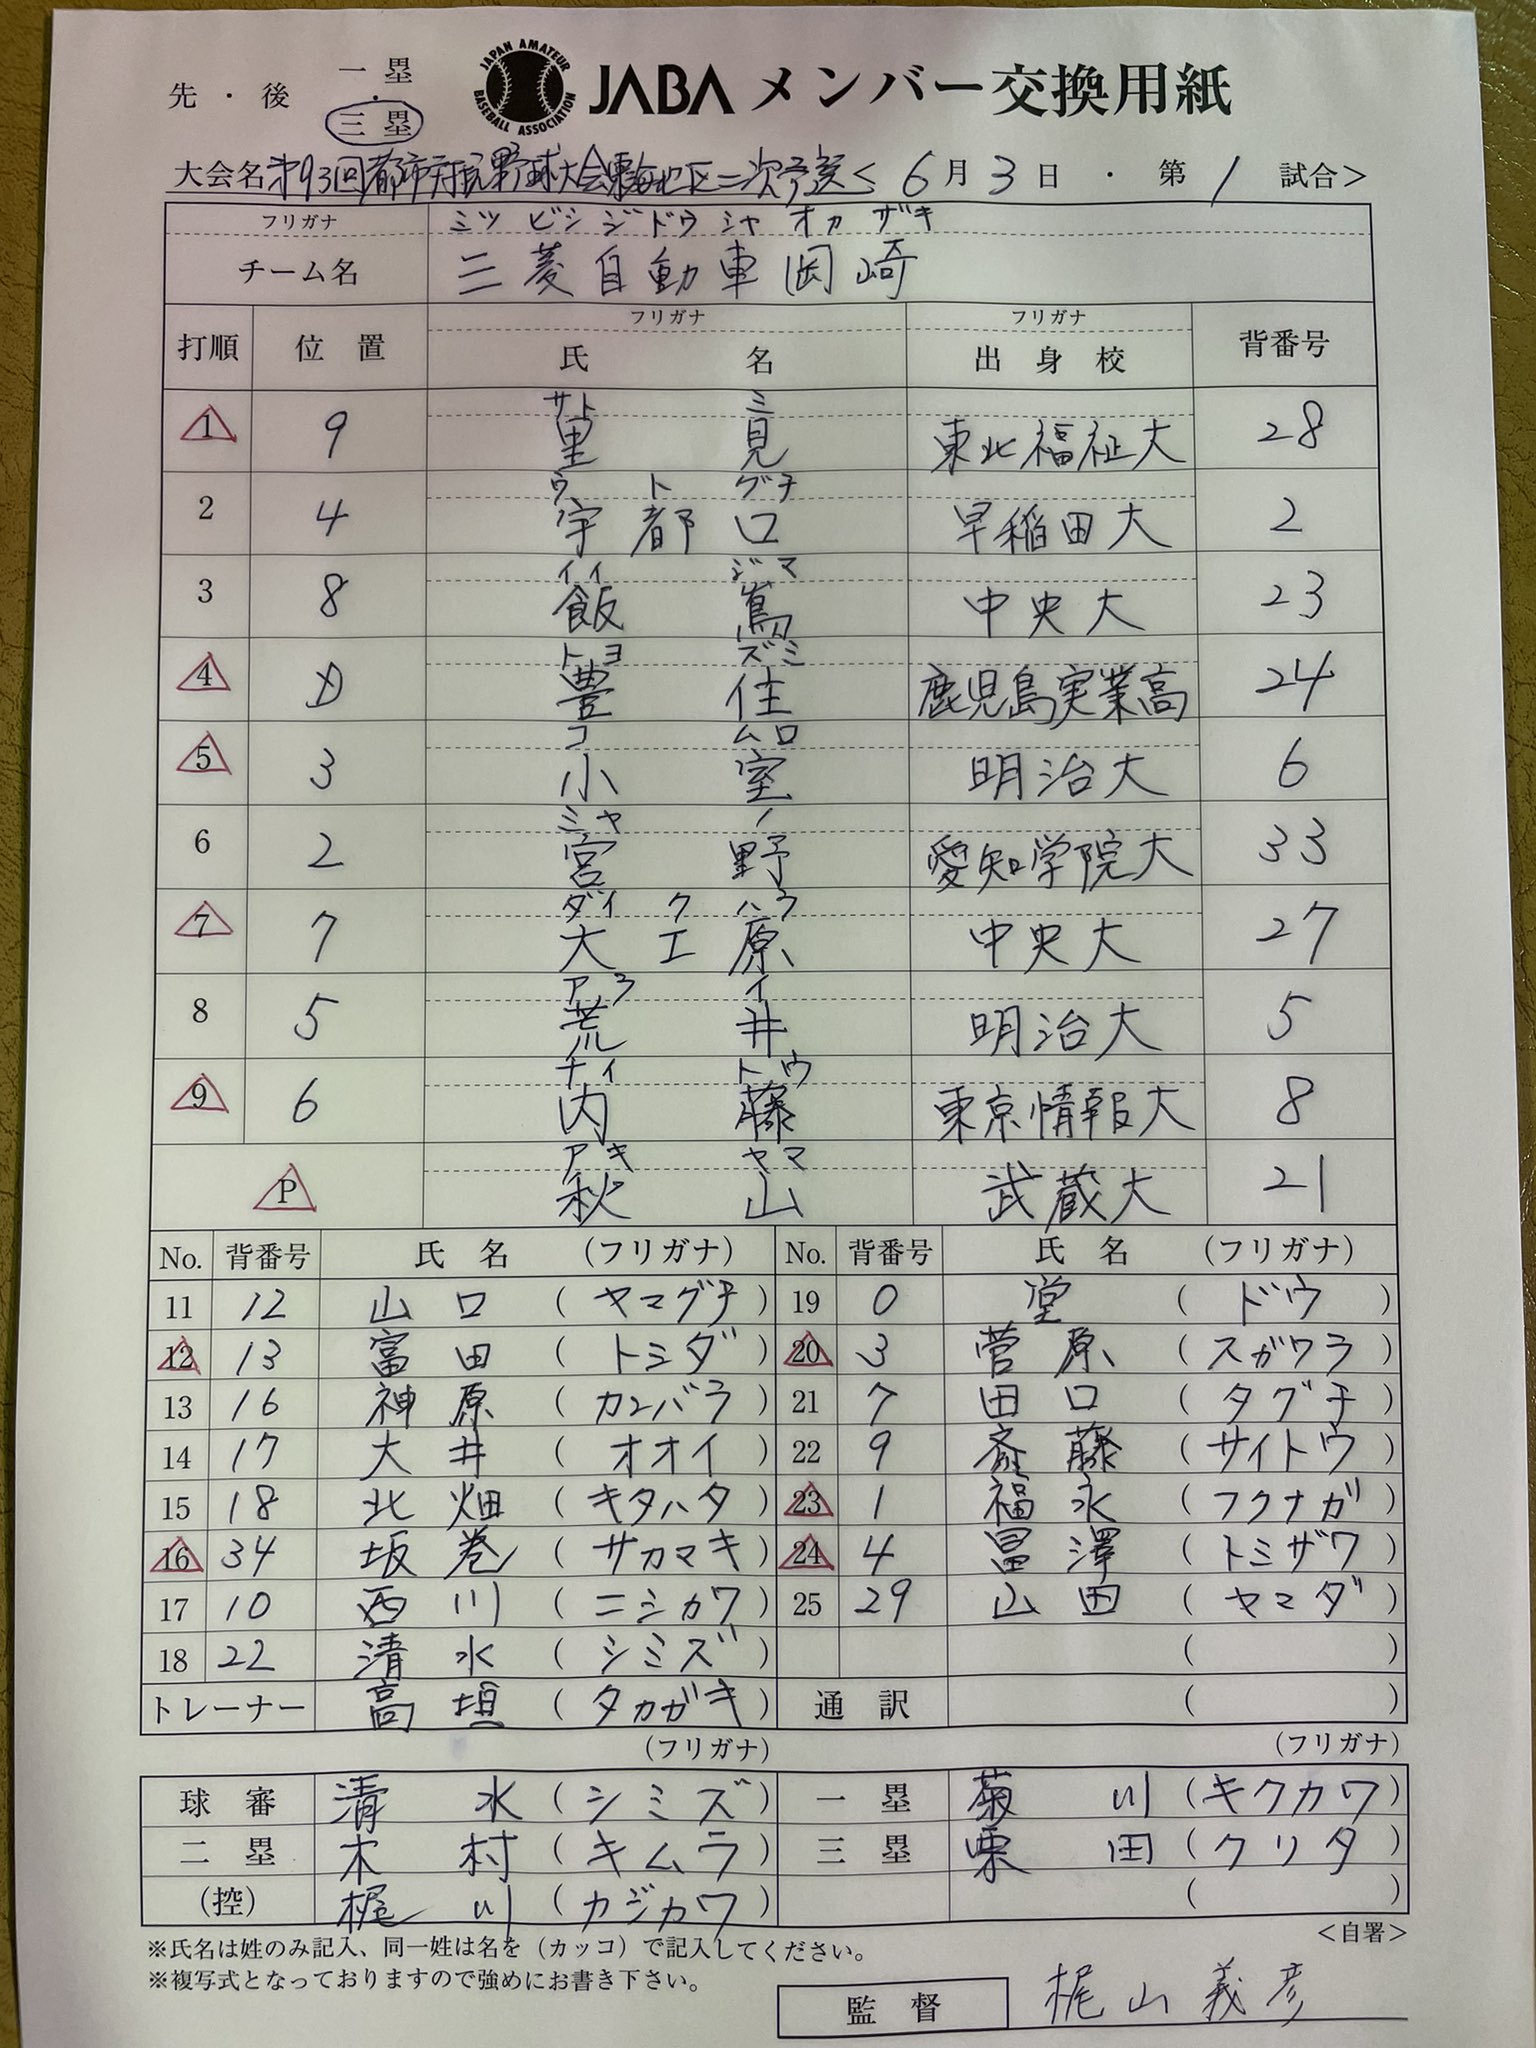 先・後 一塁・三塁
JAPAN AMATEUR BASEBALL ASSOCIATION
JABA メンバー交換用紙
大会名 第93回都市対抗野球大会東海地区二次予選 <6月3日・第1試合>
フリガナ ミツビシジドウシャオカザキ
チーム名 三菱自動車岡崎
打順 位置 フリガナ 氏名 フリガナ 出身校 背番号
サト ミ
1 9 里見 東北福祉大 28
ウ ト グチ
2 4 宇都口 早稲田大 2
イイ ジマ
3 8 飯嶌 中央大 23
トヨ ズミ
4 D 豊住 鹿児島実業高 24
コ ムロ
5 3 小室 明治大 6
ミヤ ノ
6 2 宮野 愛知学院大 33
ダイ ク ハラ
7 7 大工原 中央大 27
アラ イ
8 5 荒井 明治大 5
ナイ トウ
9 6 内藤 東京情報大 8
アキ ヤマ
P 秋山 武蔵大 21
No. 背番号 氏名 (フリガナ) No. 背番号 氏名 (フリガナ)
11 12 山口 (ヤマグチ) 19 0 堂 (ドウ)
12 13 富田 (トミダ) 20 3 菅原 (スガワラ)
13 16 神原 (カンバラ) 21 7 田口 (タグチ)
14 17 大井 (オオイ) 22 9 斎藤 (サイトウ)
15 18 北畑 (キタハタ) 23 1 福永 (フクナガ)
16 34 坂巻 (サカマキ) 24 4 冨澤 (トミザワ)
17 10 西川 (ニシカワ) 25 29 山田 (ヤマダ)
18 22 清水 (シミズ) ( )
トレーナー 高垣 (タカガキ) 通訳 ( )
(フリガナ) (フリガナ)
球審 清水 (シミズ) 一塁 菊川 (キクカワ)
二塁 木村 (キムラ) 三塁 栗田 (クリタ)
(控) 梶川 (カジカワ) ( )
※氏名は姓のみ記入、同一姓は名を（カッコ）で記入してください。 <自署>
※複写式となっておりますので強めにお書き下さい。
監督 梶山義彦